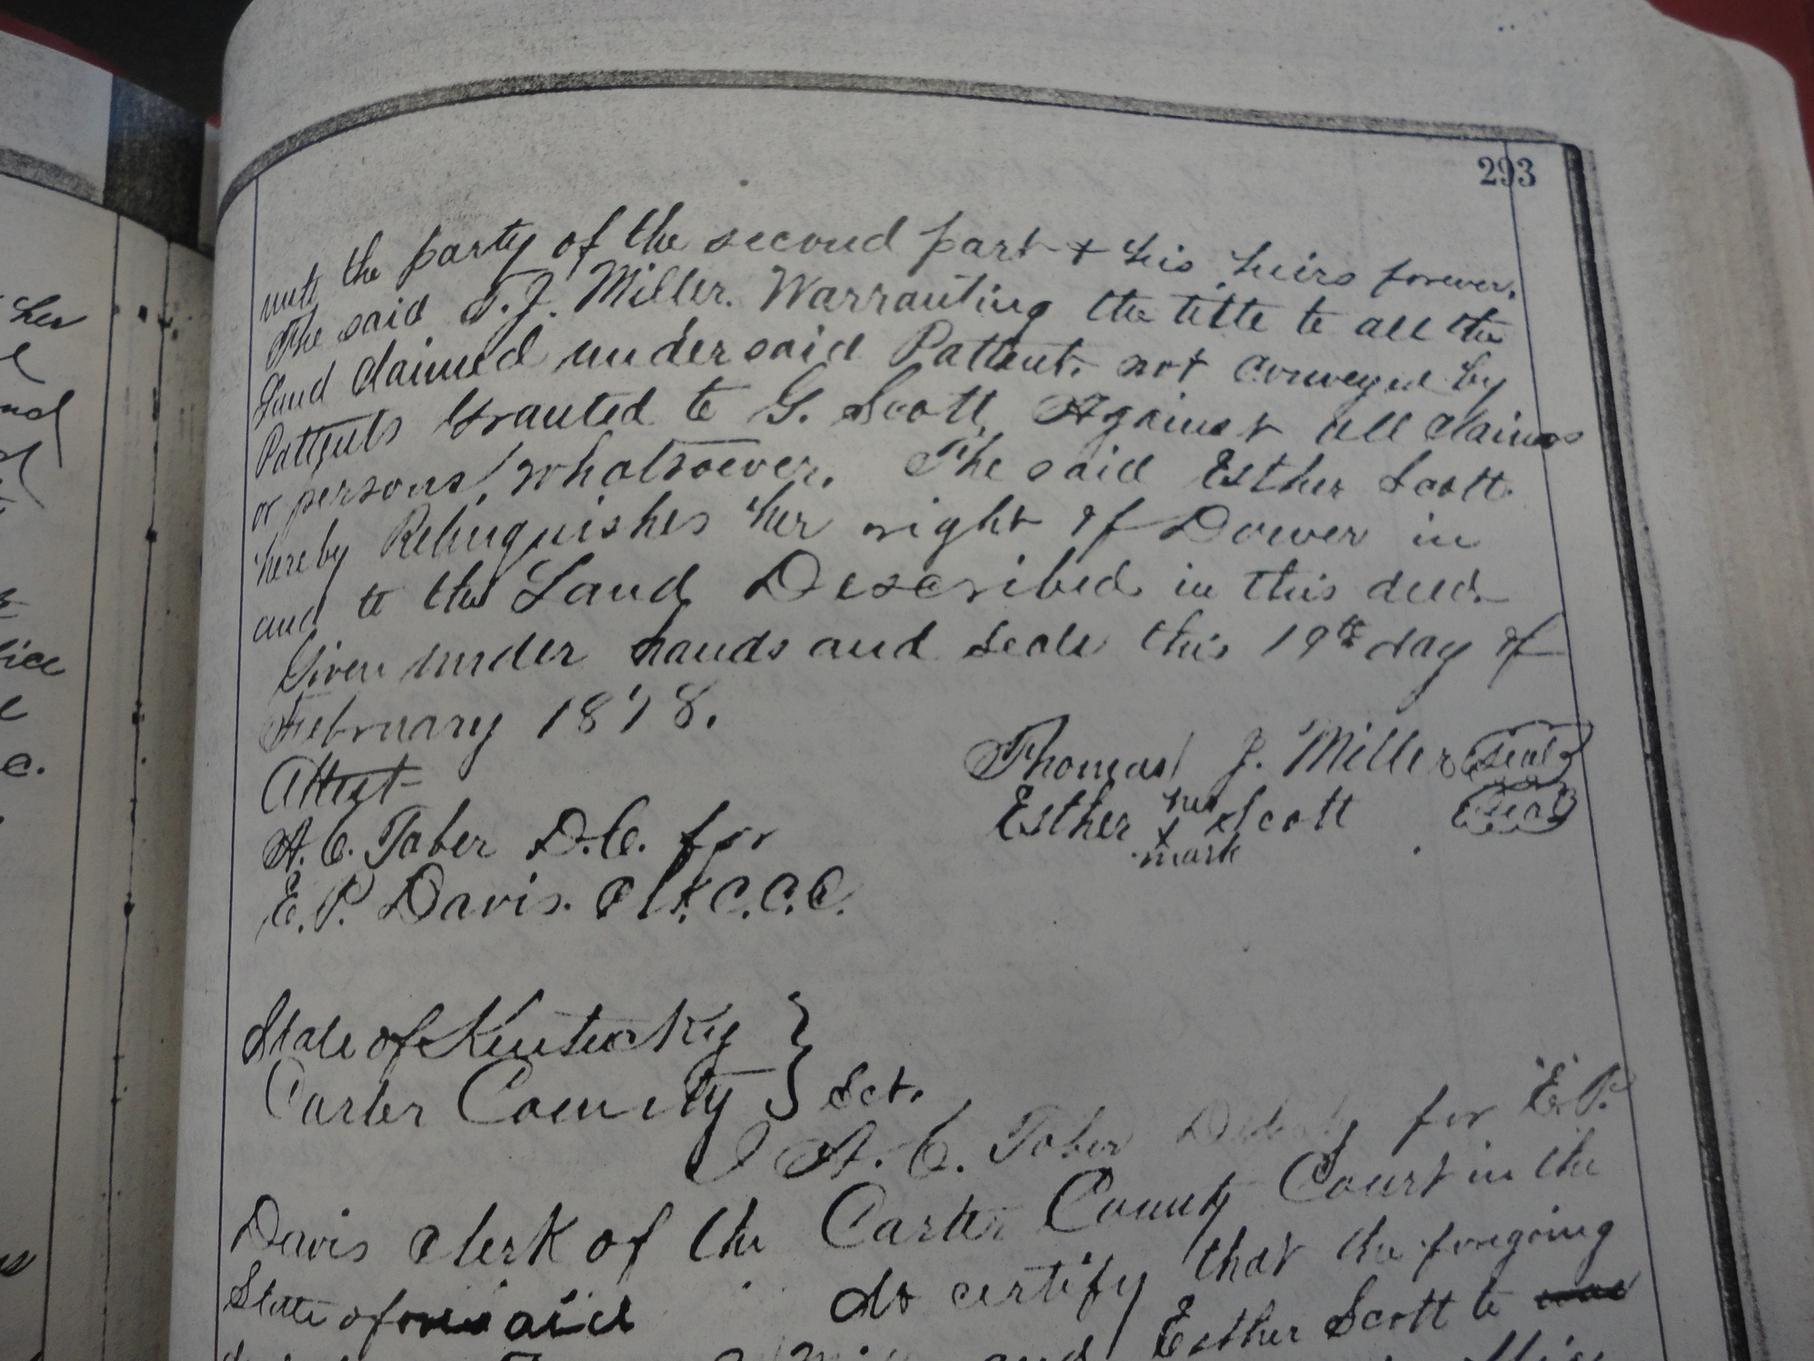 293
unto the party of the second part & his heirs forever.
The said T. J. Miller. Warranting the title to all the
Land claimed under said Pattent, not conveyed by
Pattents Granted to G. Scott, Against all claims
or persons, whatsoever. The said Esther Scott
hereby Relinquishes her right of Dower in
and to the Land Described in this deed.
Given under hands and seals this 19th day of
February 1878.
Thomas J. Miller (Seal)
Attest
Esther her x mark Scott (Seal)
A. C. Taber D.C. for
E. P. Davis. Clk. C.C.C.
State of Kentucky }
Carter County } Sct.
I A. C. Taber Deputy for E. P.
Davis Clerk of the Carter County Court in the
State aforesaid do certify that the foregoing
and Esther Scott to was
her
and
c.